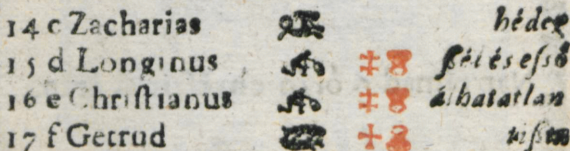 14 c Zacharias hideg
15 d Longinus ſzél és eſső
16 e Chriſtianus álhatatlan
17 f Getrud